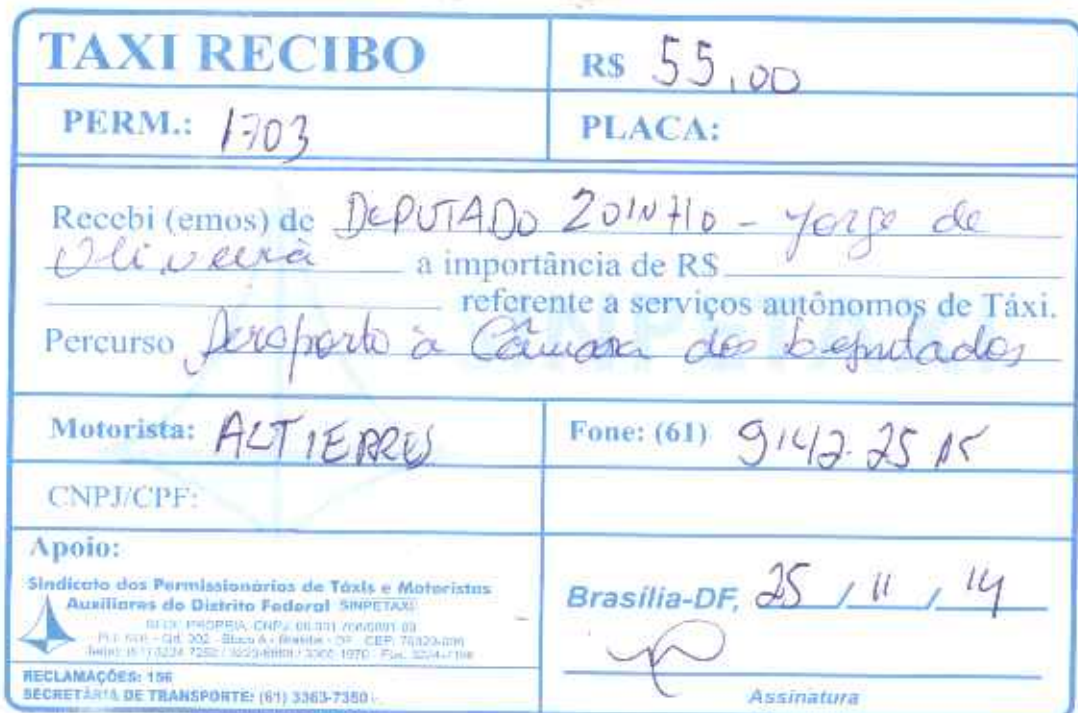 TAXI RECIBO
R$ 55,00
PERM.: 1703
PLACA:
Recebi (emos) de DEPUTADO ZOINHO - Jorge de
Oliveira a importância de R$
referente a serviços autônomos de Táxi.
Percurso Aeroporto à Câmara dos Deputados
Motorista: ALTIERRES
Fone: (61) 9142.25
CNPJ/CPF:
Apoio:
Sindicato dos Permissionários de Táxis e Motoristas
Auxiliares do Distrito Federal SINPETAXI
SEDE PRÓPRIA, CNPJ:
RECLAMAÇÕES: 156
SECRETÁRIA DE TRANSPORTE: (61) 3363-7350
Brasília-DF, 25 / 11 / 14
Assinatura